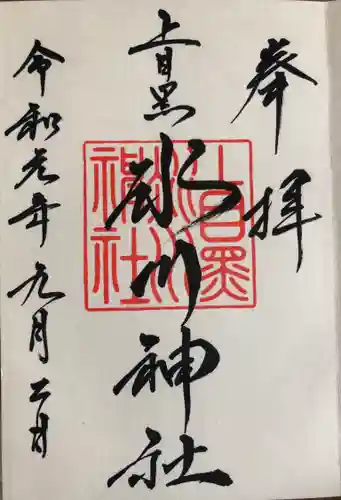 奉拝
上目黒
氷川神社
上目黒
氷川
神社
令和元年九月二日